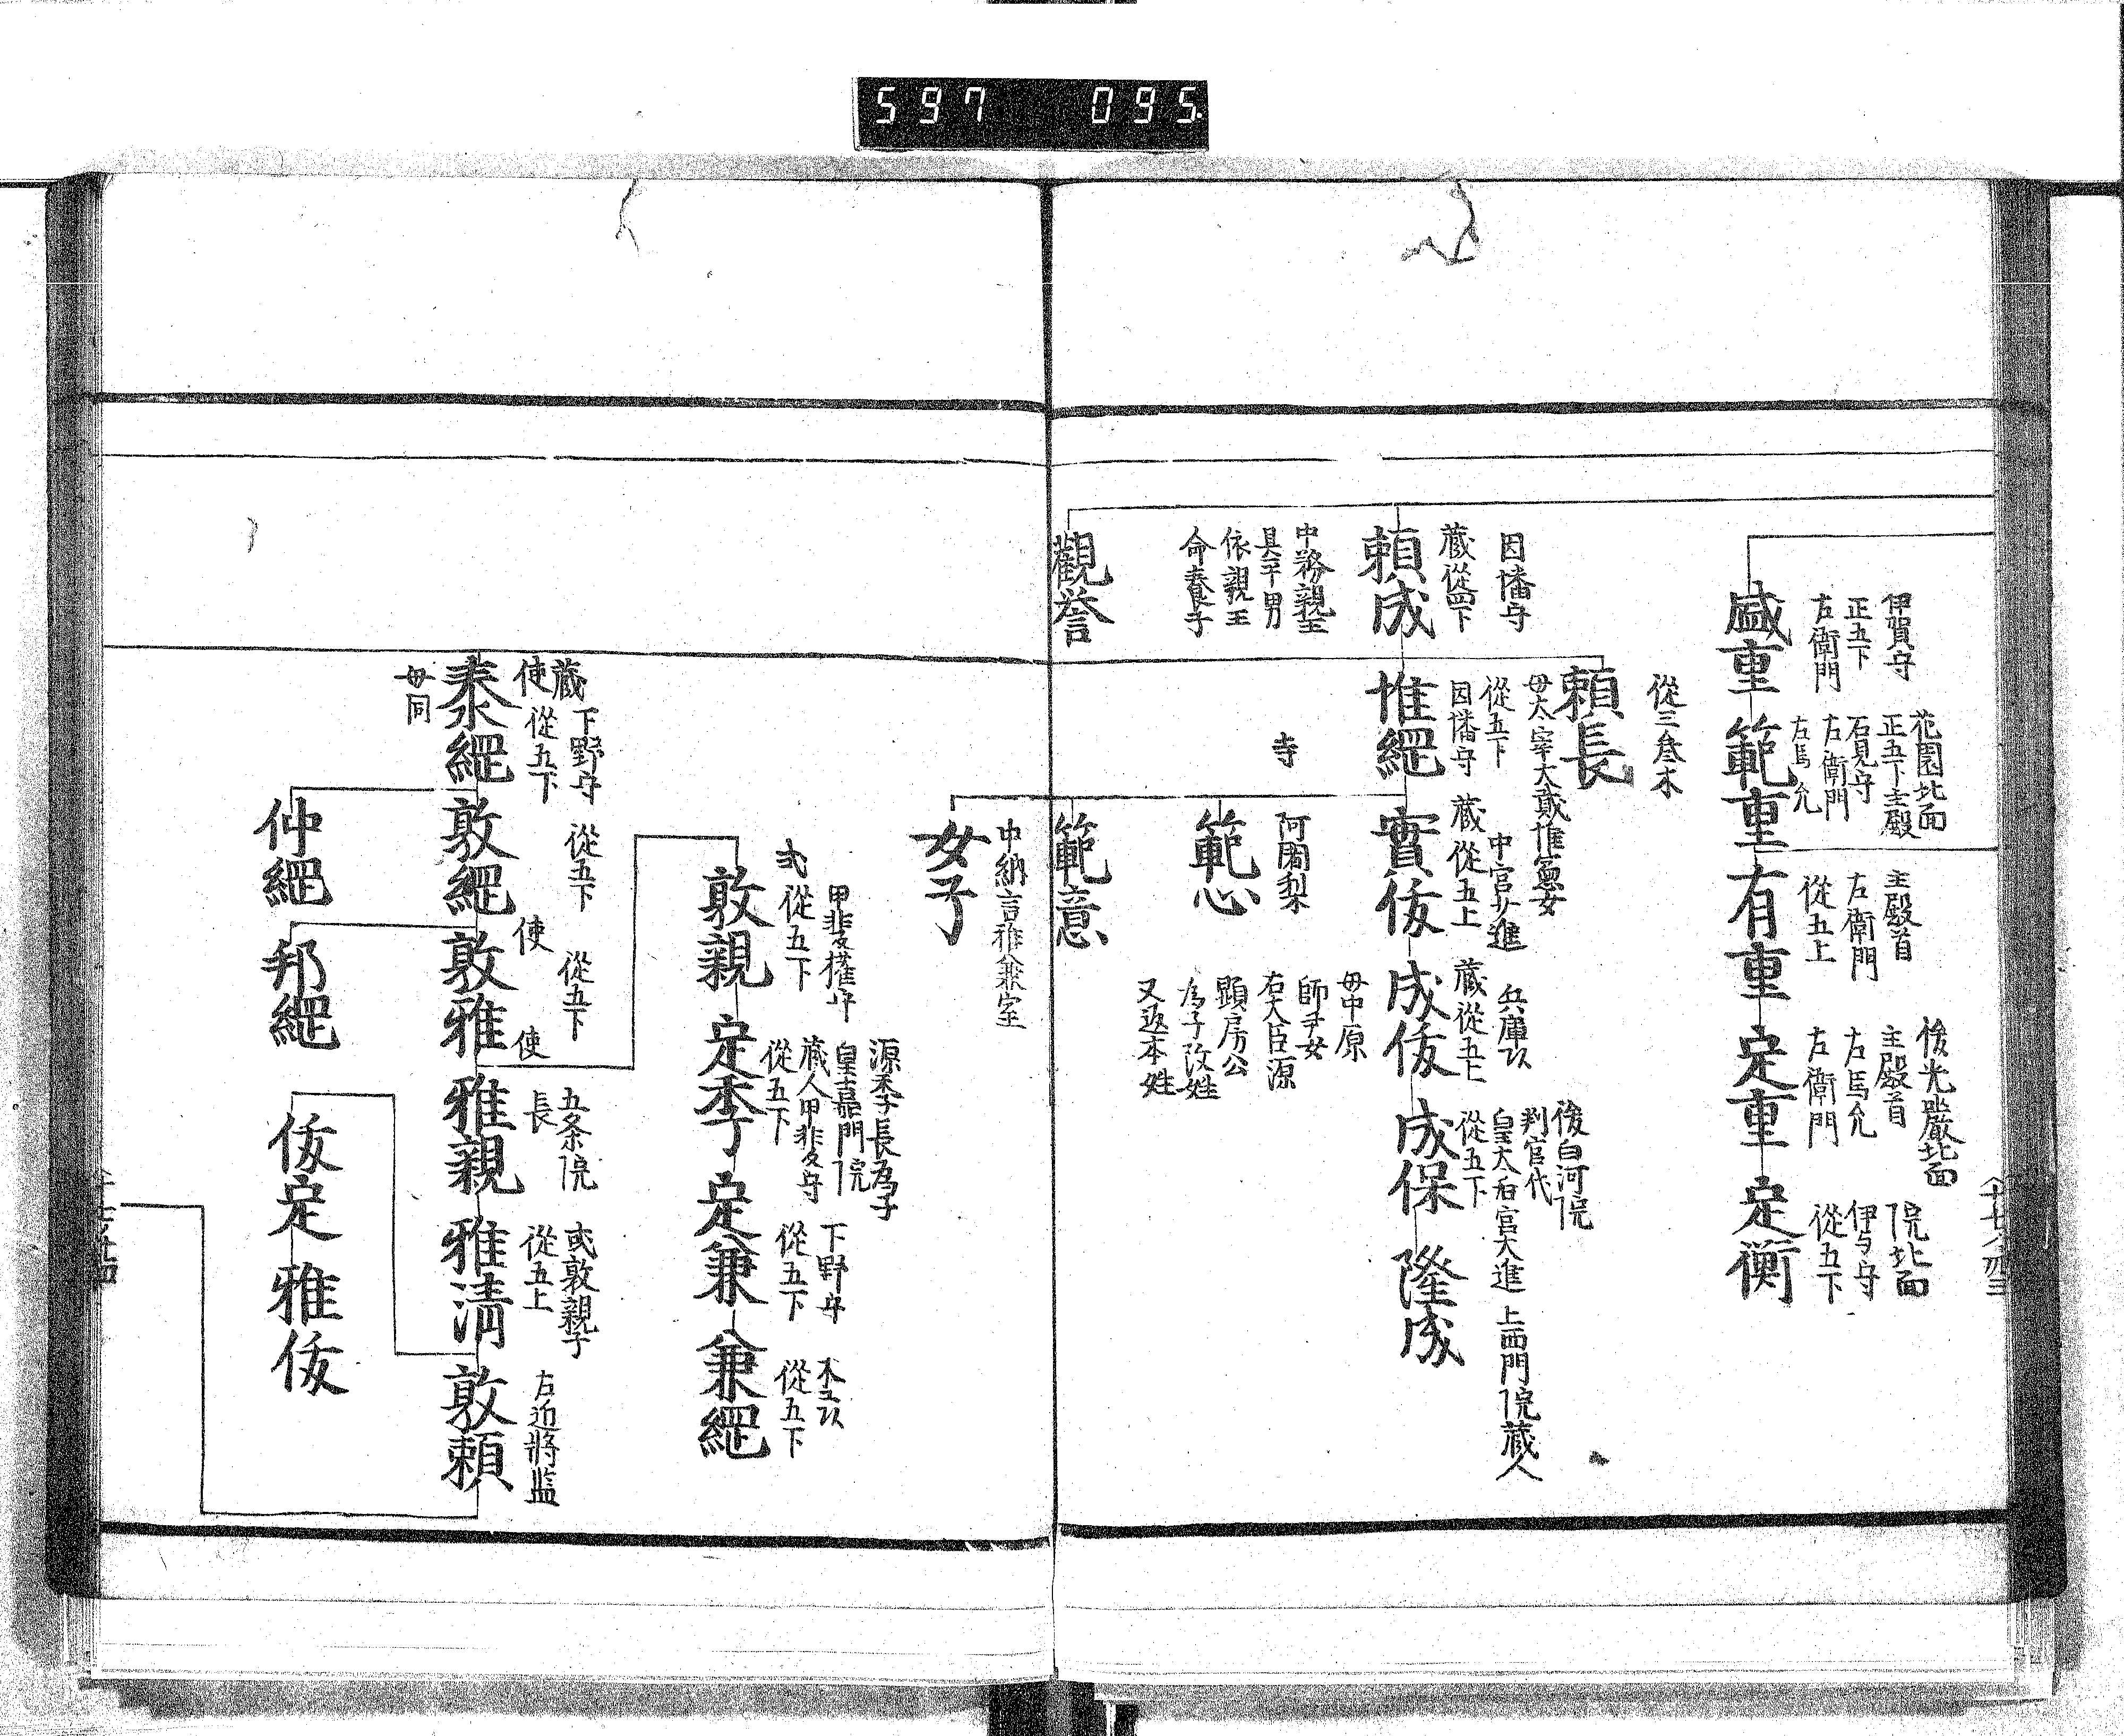 597 095
伊賀守
正五下
左衛門
盛重
花園北面
正五下主殿
石見守
右衛門
左馬允
範重
主殿首
左衛門
從五上
有重
後光嚴北面
主殿首
右馬允
左衛門
定重
院北面
伊与守
從五下
定衡
從三參木
頼長
母太宰大貳惟憲女
因幡守
藏從四下
頼成
中務親王
具平男
依親王
命養子
從五下
因幡守
惟綱
中宮少進
藏從五上
實俊
兵庫以
藏從五上
成俊
母中原
師平女
右大臣源
顕房公
為子改姓
又返本姓
後白河院
判官代
皇太后宮大進
從五下
成保
上西門院藏人
隆成
寺
阿闍梨
範心
範意
觀誉
中納言雅兼室
女子
甲斐權守
從五下
敦親
源季長為子
皇嘉門院
藏人甲斐守
從五下
定季
下野守
從五下
定兼
木工以
從五下
兼綱
藏
使
下野守
從五下
泰綱
母同
從五下
敦綱
使
從五下
敦雅
使
五条院
長
雅親
或敦親子
從五上
雅清
右近將監
敦頼
仲綱
邦綱
俊定
雅俊